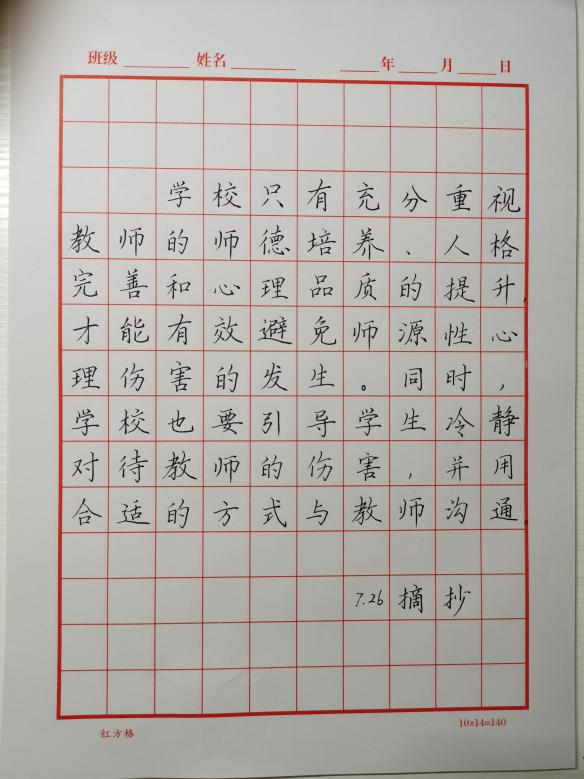 班级 姓名 年 月 日
学校只有充分重视
教师的师德培养、人格
完善和心理品质的提升,
才能有效避免师源性心
理伤害的发生。同时,
学校也要引导学生冷静
对待教师的伤害,并用
合适的方式与教师沟通。
7.26 摘抄
红方格 10x14=140